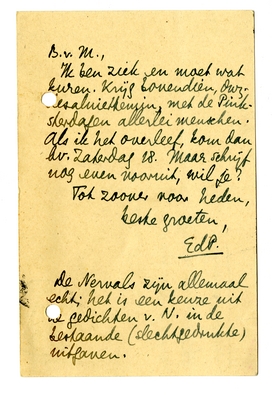 B.v.M.,
Ik ben ziek en moet wat
kuren. Krijg bovendien,
met de Pink-
sterdagen allerlei menschen.
Als ik het overleef, kom dan
bv. Zaterdag 18. Maar schrijf
nog even vooruit, wil je?
Tot zoover voor heden,
beste groeten,
EdP.
De Nervals zijn allemaal
echt; het is een keuze uit
de gedichten v. N. in de
bestaande (slechtgedrukte)
uitgaven.